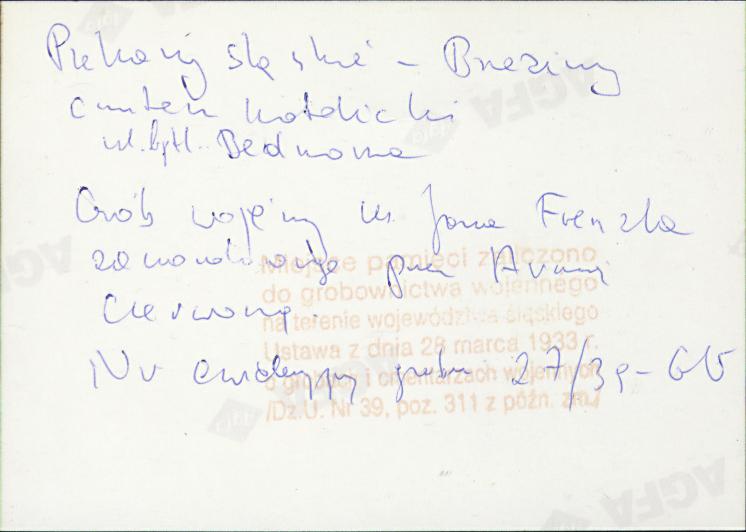 Piekary śląskie - Brzeziny
cmentarz katolicki
ul. Bednorza
Grób wojenny ks. Jana Frenzla
zamordowanego przez Armię
Czerwoną.
Nr ewidencyjny grobu 27/39-GW
Miejsce pamięci zaliczono
do grobownictwa wojennego
na terenie województwa śląskiego
Ustawa z dnia 28 marca 1933 r.
o grobach i cmentarzach wojennych
/Dz.U. Nr 39, poz. 311 z późn. zm./
AGFA
AGFA
AGFA